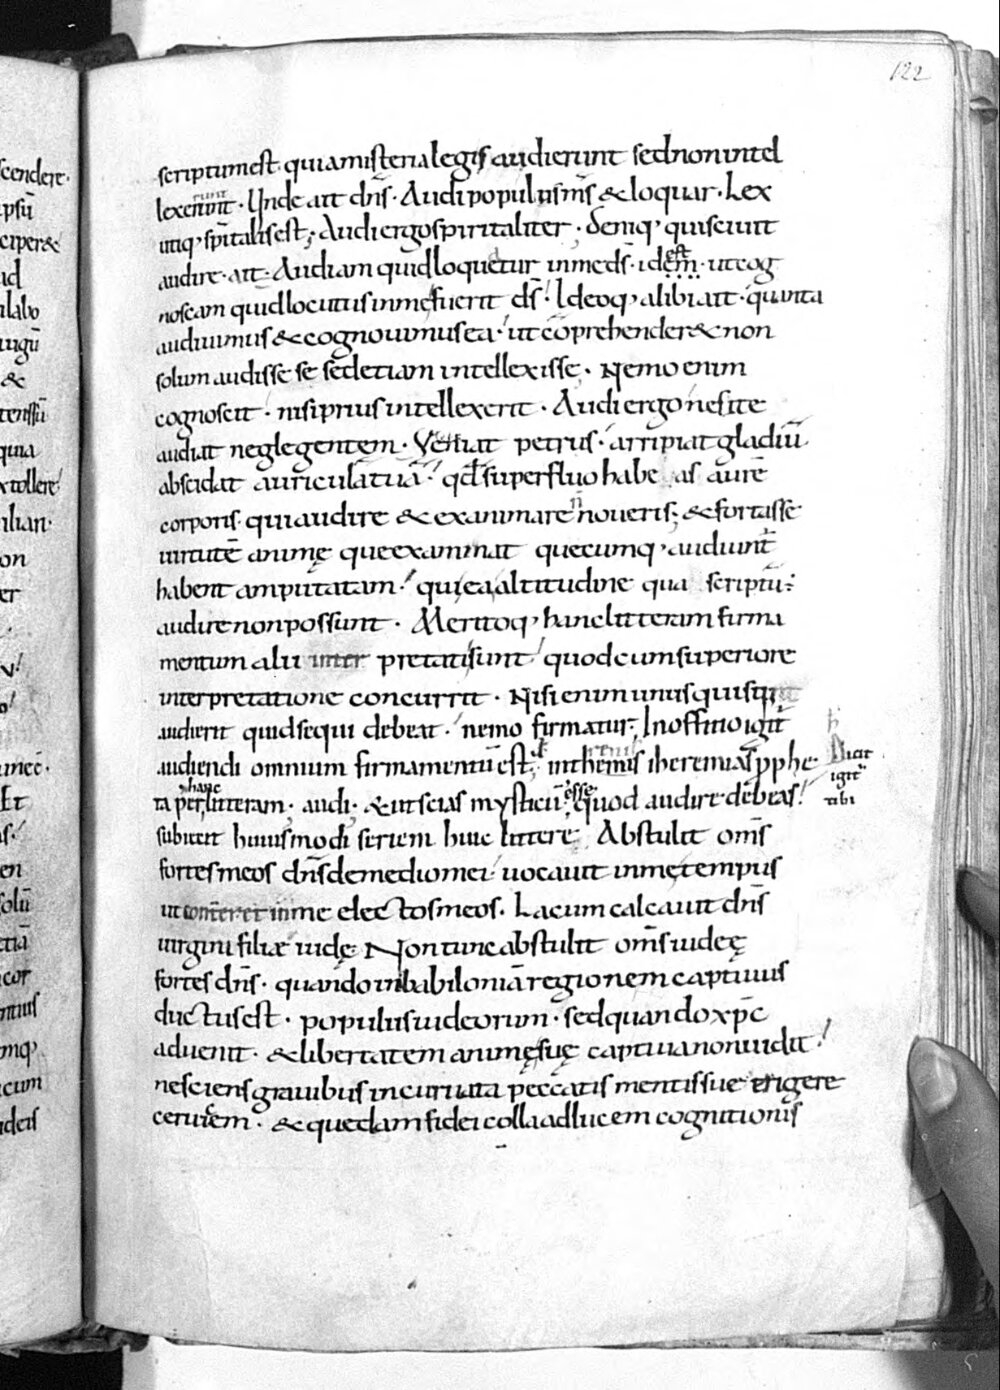 122
scriptum est quia misteria legis audierunt sed non intel
lexerunt · Unde ait dn̄s · Audi populus m̄s & loquar · Lex
utiq; sp̄italis est; Audi ergo spiritaliter · deniq; qui sciunt
audire · ait · Audiam quid loquetur in me ds̄ · idem · ut cog
noscam quid locutus in me fuerit ds̄! Ideoq; alibi ait · quanta
audiuimus & cognouimus ea · ut cōprehenderet & non
solum audisse se sed etiam intellexisse · Nemo enim
cognoscit · nisi prius intellexerit · Audi ergo ne si te
audiat neglegentem · Veniat petrus · arripiat gladiū
abscidat auriculā tuā! qd̄ superfluo habeas aurē
corporis qui audire & examinare n̄ noueris; & fortasse
uirtutē animę que examinat quecumq; audiunt̄
habent amputatam! qui ea altitudine qua scriptū:
audire non possunt · Meritoq; hanc litteram firma
mentum alii inter pretati sunt quod cum superiore
interpretatione concurrit · Nisi enim unusquisq;
audierit quid sequi debeat nemo firmatur; In officio igit̄
audiendi omnium firmamentū est; in themis iheremias p̄phe Dicat igit̄ tibi
ta per hanc litteram · audi · & ut scias mysticū esse quod audire debeas!
subicit huiusmodi seriem huic littere Abstulit om̄s
fortes meos dn̄s de medio mei uocauit in me tempus
ut contereret in me electos meos · Lacum calcauit dn̄s
uirgini filiæ iudę Non tunc abstulit om̄s iudeę
fortes dn̄s · quando in babiloniā regionem captiuus
ductus est · populus iudeorum · sed quando xp̄c
aduenit · & libertatem animę suę captiua non uidit!
nesciens grauibus incuruata peccatis mentis sue erigere
ceruicem · & quedam fidei colla ad lucem cognitionis